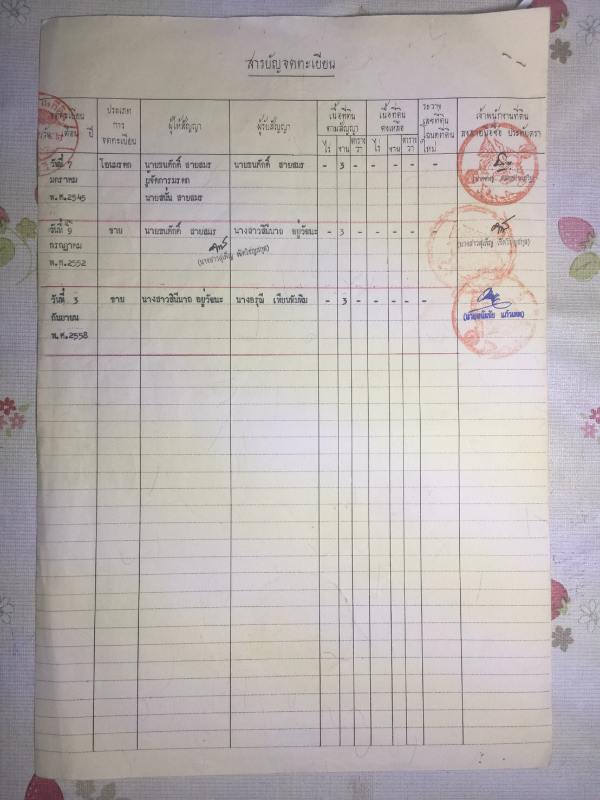 สารบัญจดทะเบียน
ประเภท
การ
จดทะเบียน
ผู้ให้สัญญา
ผู้รับสัญญา
เนื้อที่ดิน
ตามสัญญา
ไร่ งาน ตาราง
วา
เนื้อที่ดิน
คงเหลือ
ไร่ งาน ตาราง
วา
ระวาง
เลขที่ดิน
ใหม่
เจ้าพนักงานที่ดิน
ลงลายมือชื่อ ประทับตรา
วันที่ 7 โอนมรดก นายธนศักดิ์ สายสมร นายธนศักดิ์ สายสมร - 3 - - - - -
มกราคม ผู้จัดการมรดก
พ.ศ.2545 สายสมร
วันที่ 9 ขาย นายธนศักดิ์ สายสมร นางสาวชินีนาถ อยู่วัฒนะ - 3 - - - -
กรกฎาคม
พ.ศ.2552
วันที่ 3 ขาย นางสาวชินีนาถ อยู่วัฒนะ นางอรุณี เทียนทับทิม - 3 - - - - -
กันยายน
พ.ศ.2558